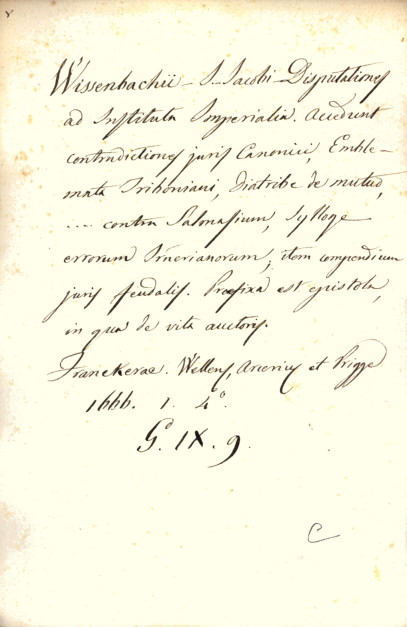 Wissenbachii - J. Jacobi - Disputationes
ad Instituta Imperialia. Accedunt
contradictiones juris Canonici, Emble-
mata Triboniani, Diatribe de mutuo,
.... contra Salmasium, Sylloge
errorum Irnerianorum; item compendium
juris feudalis. Praefixa est epistola,
in qua de vita auctoris.
Franekerae. Wellens, Arcerius et
1666. 1. 4°.
G. IX. 9
C